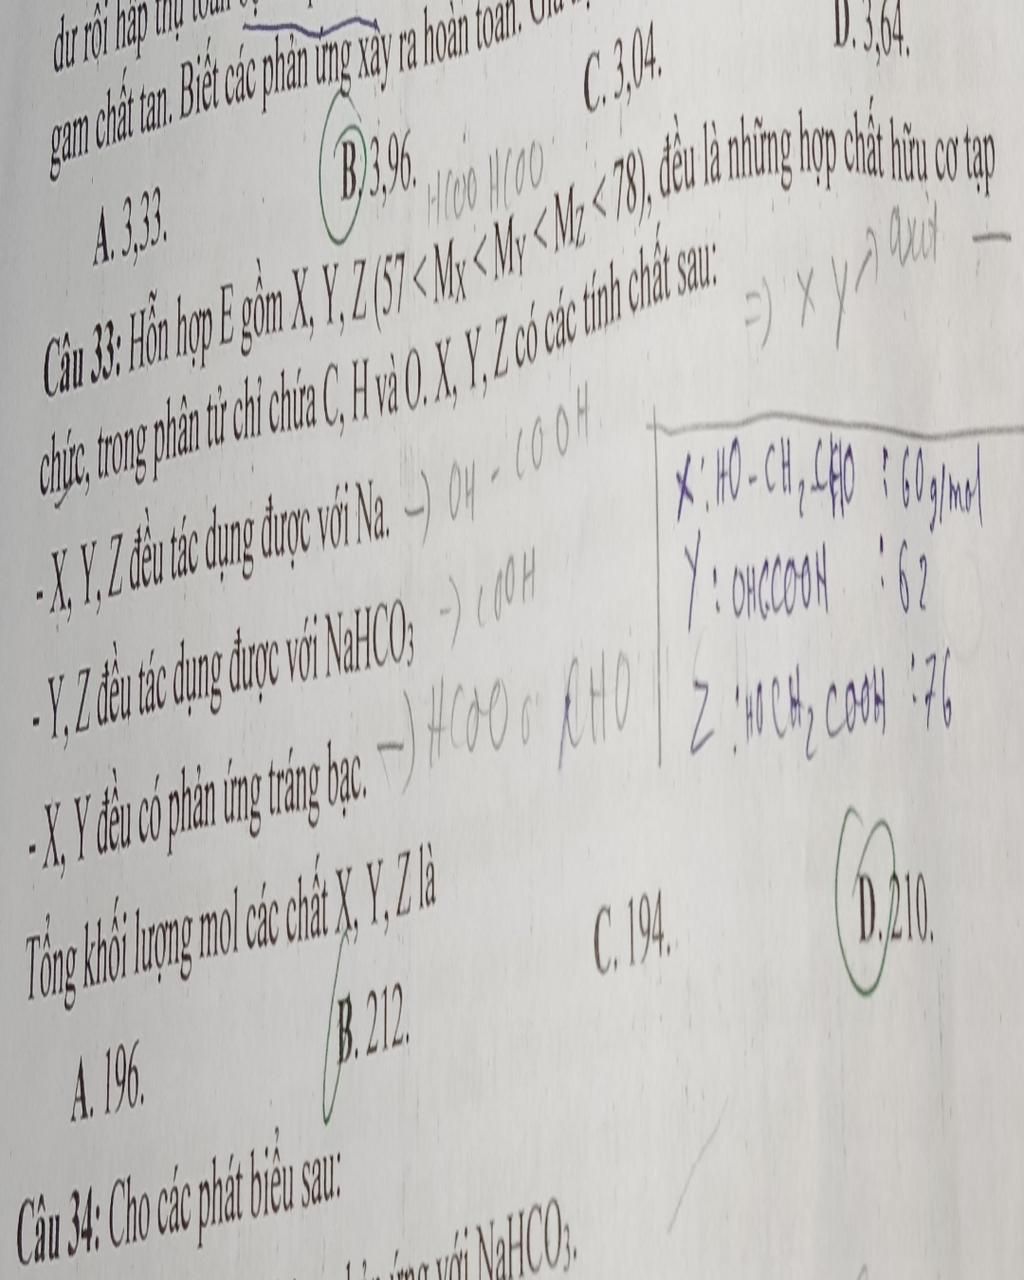 dư rồi hấp thụ
gam chất tan. Biết các phản ứng xảy ra hoàn toàn.
A. 3,33.
B. 3,96.
C. 3,04.
D. 3,64.
HCOO HCOO
Câu 33: Hỗn hợp E gồm X, Y, Z (57 < Mx < My < Mz < 78), đều là những hợp chất hữu cơ tạp
chức, trong phân tử chỉ chứa C, H và O. X, Y, Z có các tính chất sau:
=) X Y axit
- X, Y, Z đều tác dụng được với Na. -) OH - COOH
- Y, Z đều tác dụng được với NaHCO3 -) COOH
- X, Y đều có phản ứng tráng bạc. -) HCOO CHO
X: HO-CH2-CHO : 60g/mol
Y : OHCCOOH : 62
Z : HOCH2COOH : 76
Tổng khối lượng mol các chất X, Y, Z là
A. 196.
B. 212.
C. 194.
D. 210.
Câu 34: Cho các phát biểu sau:
ứng với NaHCO3.